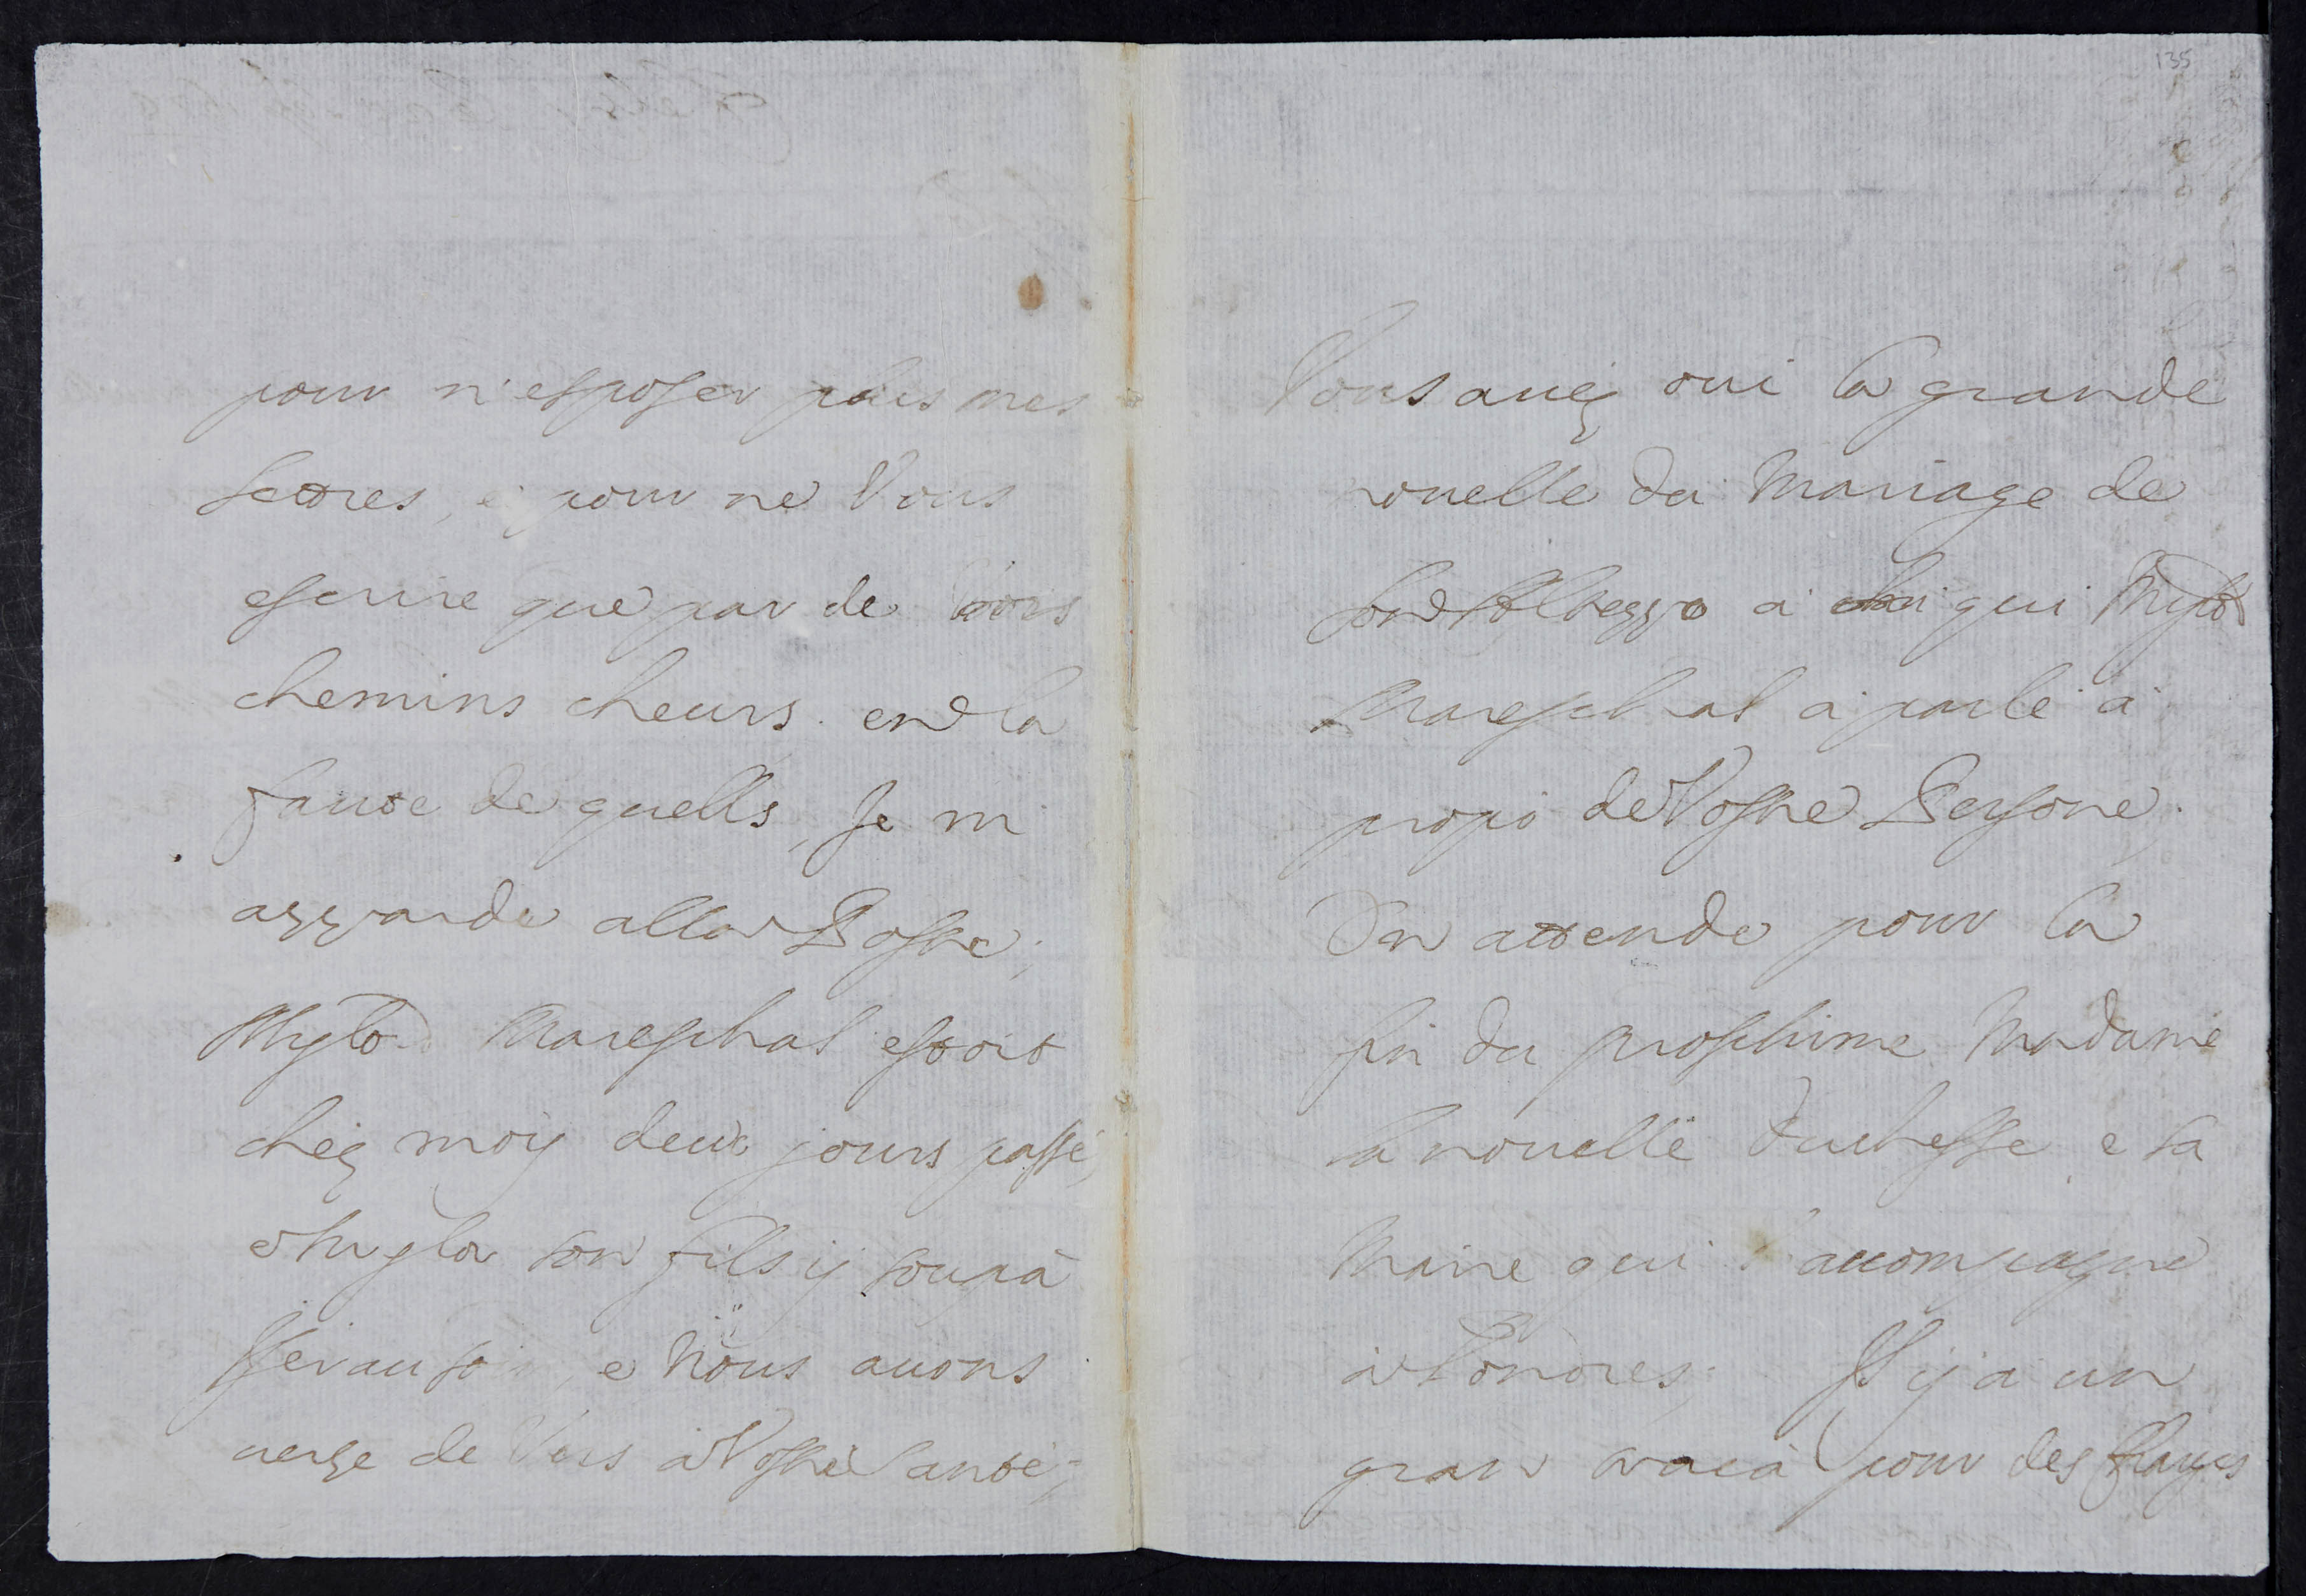 135
pour n'esposer plus mes
lettres, e pour ne Vous
escrire que par de bons
chemins cheurs. en la
faute de quells, Je m
azzarde alla Poste;
Mylord Mareschal estoit
chez moy deux jours passé,
e Mylor son fils ij soupa
Hier au soi, e Nous auons
uerse de Vins à Vostre Santé;
Vous auez oui la grande
nouelle du Mariage de
a qui Mylord
Mareschal a parlé a
propò de Vostre Persone,
On attende pour la
fin du proschime Madame
la nouelle Duchesse e sa
Maire qui l'accompagne
à Londres; Il ij a un
gran pour des